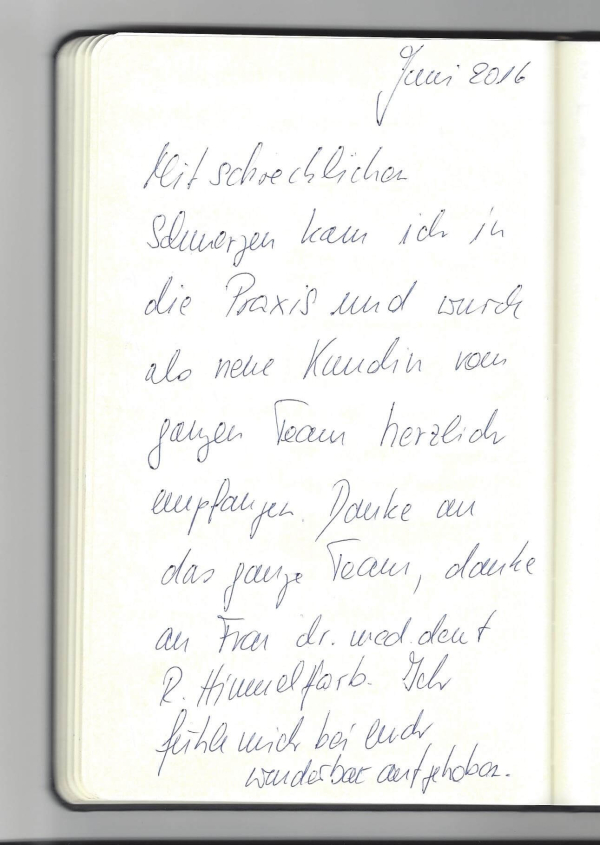 Juni 2016
Mit schrecklichen
Schmerzen kam ich in
die Praxis und wurde
als neue Kundin vom
ganzen Team herzlich
empfangen. Danke an
das ganze Team, danke
an Frau dr. med. dent
R. Himmelfarb. Ich
fühle mich bei euch
wunderbar aufgehoben.